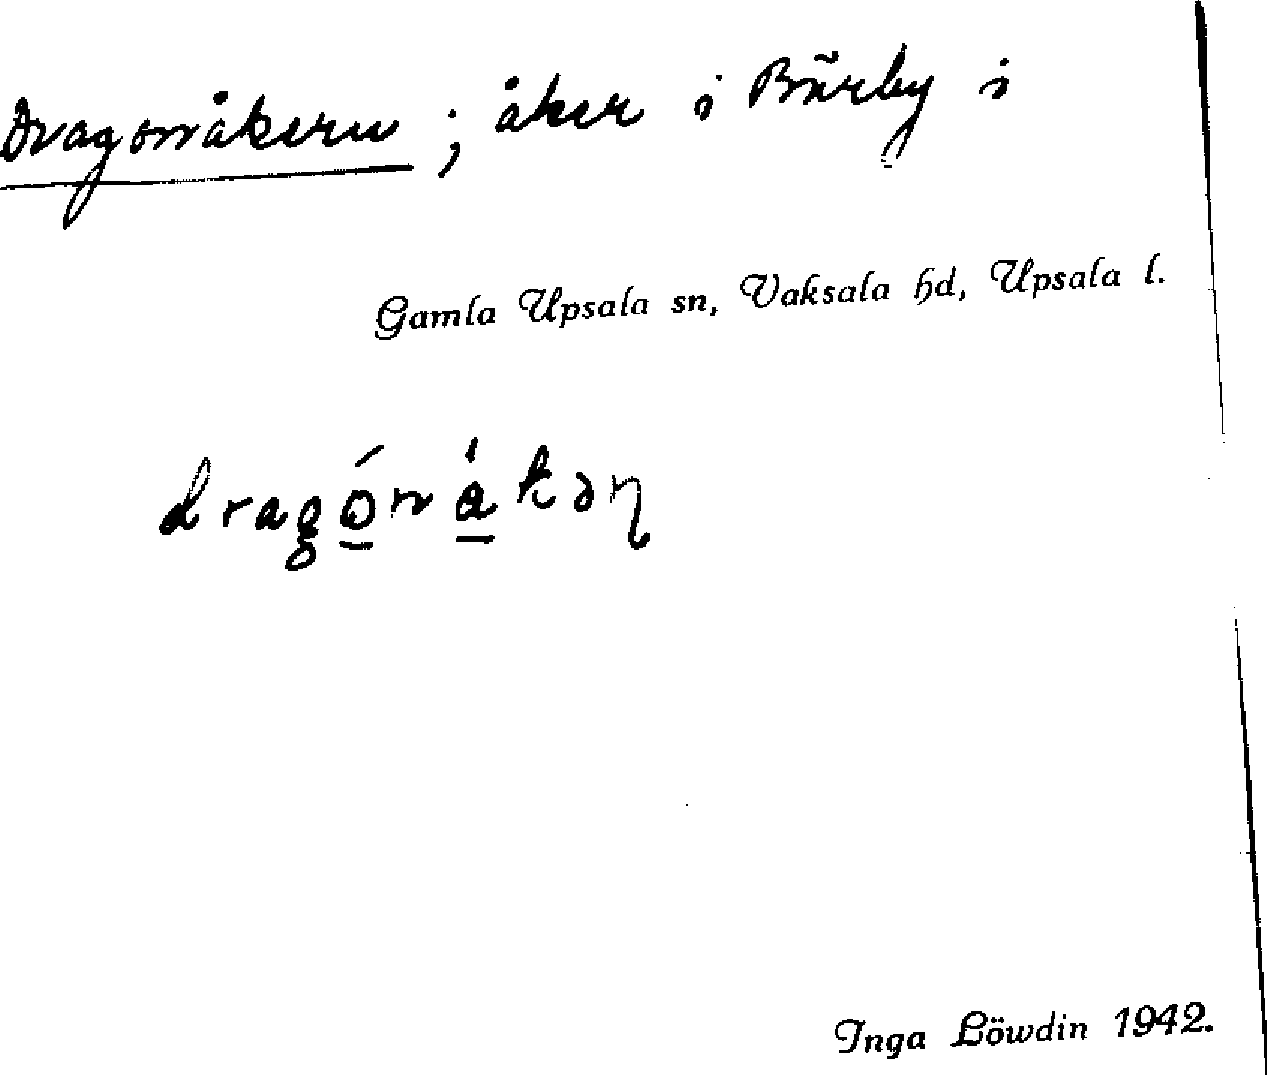 Dragonåkern ; åker i Bärby i
Gamla Upsala sn, Vaksala hd, Upsala l.
dragó̲ná̲kəɳ
Inga Löwdin 1942.